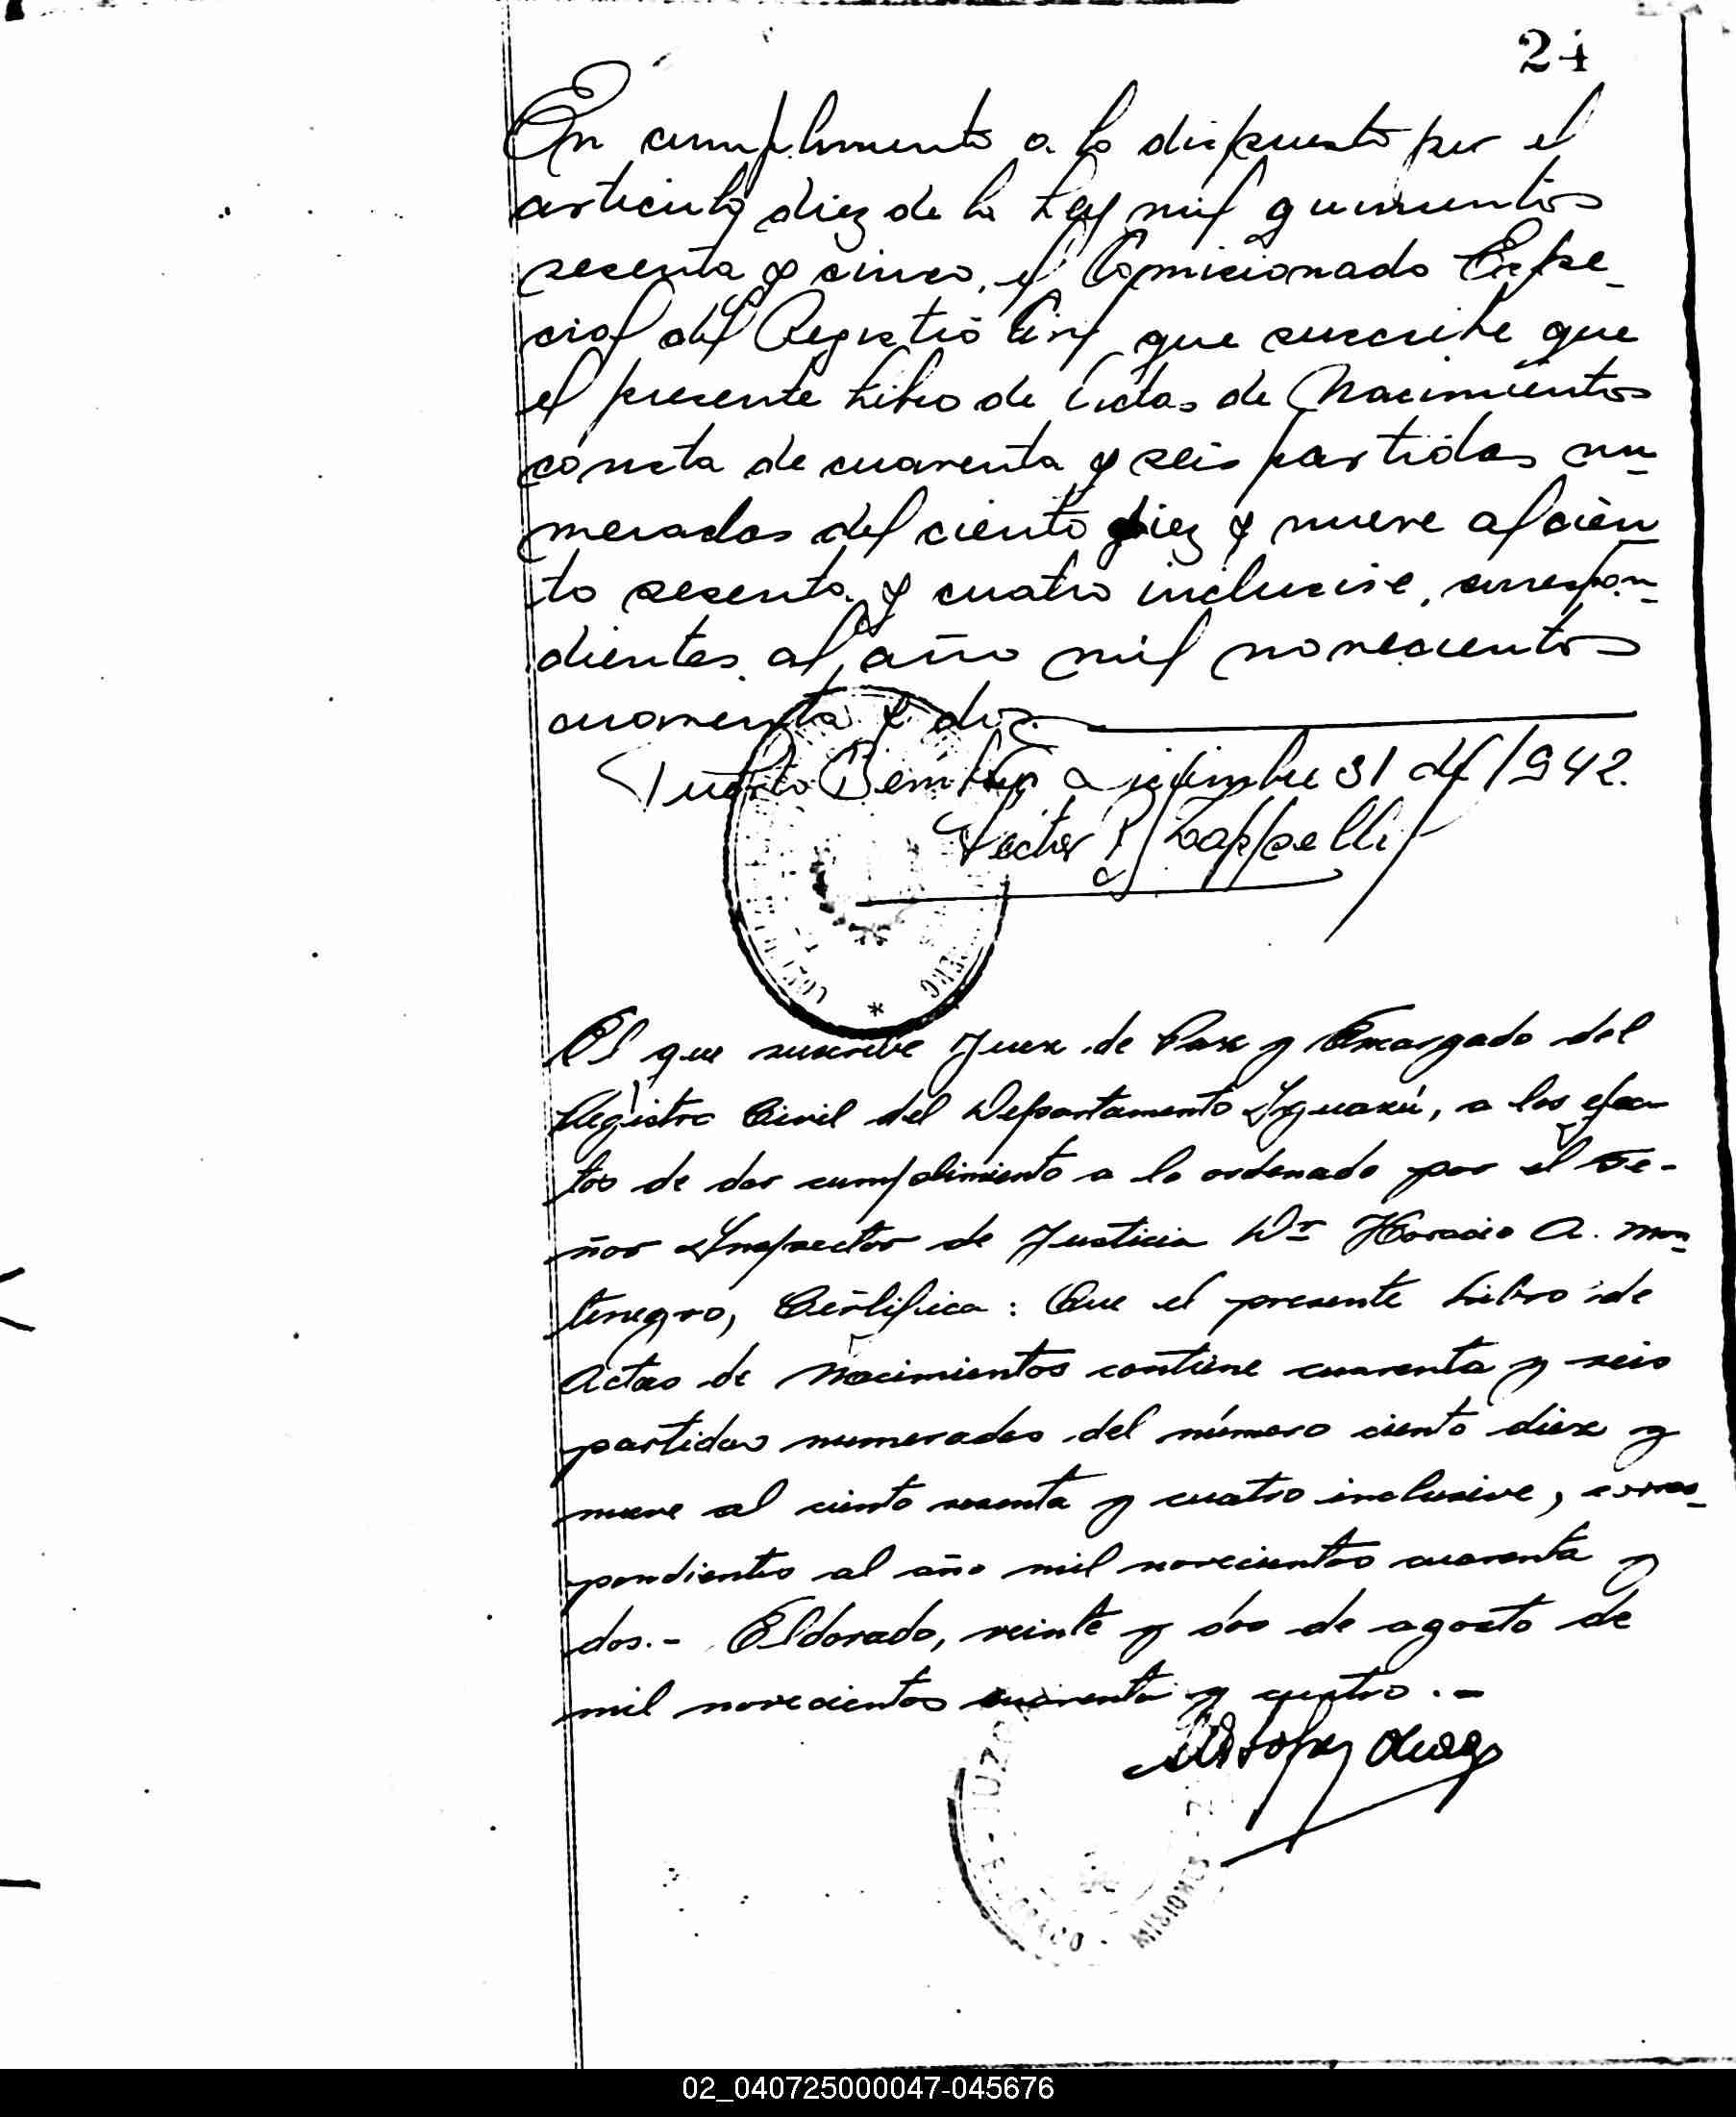 24
En cumplimento a lo dispuesto por el
articulo diez de la Ley mil quinientos
sesenta y cinco, el Comicionado Espe-
cial del Registro Civil que suscribe que
el presente Libro de Actas de Nacimientos
consta de cuarenta y seis partidas nu-
meradas del ciento diez y nueve al cien-
to sesenta y cuatro inclusive, correspon-
dientes al año mil novecientos
cuarenta y dos.
Puerto Bemberg Diciembre 31 del 1942.
Hector P. Zappelli
El que suscribe Juez de Paz y Encargado del
Registro Civil del Departamento Iguazú, a los efec-
tos de dar cumplimiento a lo ordenado por el Se-
ñor Inspector de Justicia Dr Horacio A. Mon-
tenegro, Certifica: Que el presente Libro de
Actas de Nacimientos contiene cuarenta y seis
partidas numeradas del número ciento diez y
nueve al ciento sesenta y cuatro inclusive, corres-
pondientes al año mil novecientos cuarenta y
dos.- Eldorado, veinte y dos de agosto de
mil novecientos cuarenta y cuatro.-
MISIONES
02_040725000047-045676